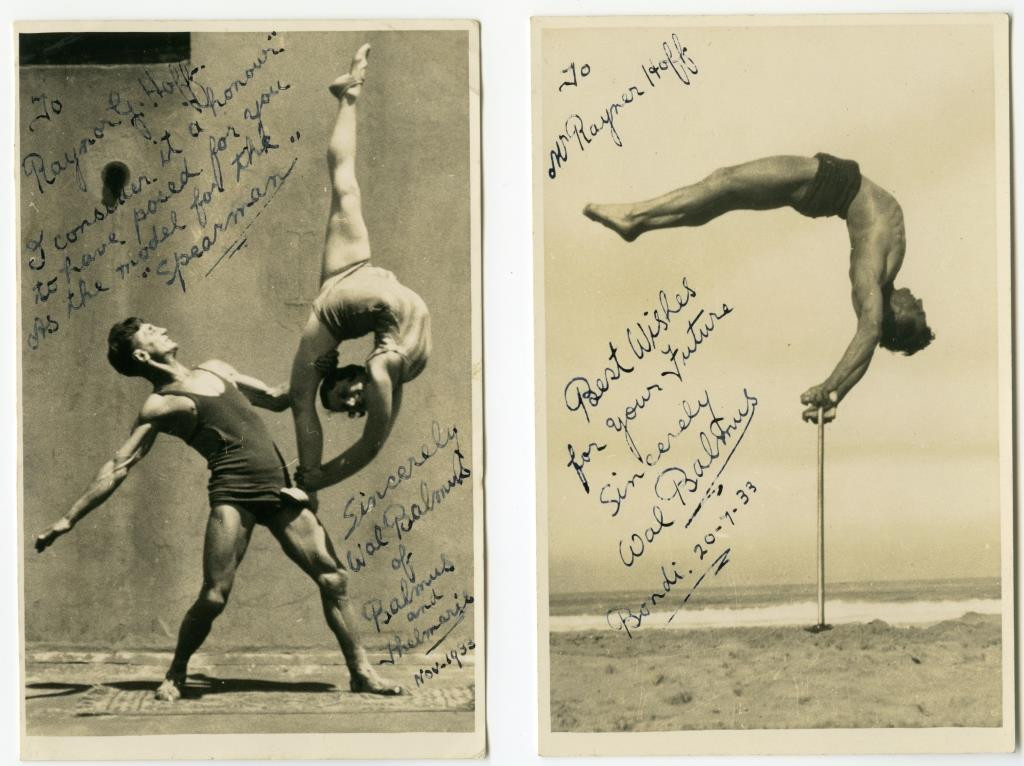 To
Raynor G. Hoff.
I consider it a "honour"
to have posed for you
As the model for the
"Spearman"
Sincerely
Wal Balmus
of
Balmus
and
Thelmarie
Nov-1933
To
Mr Rayner Hoff
Best Wishes
for your Future
Sincerely
Wal Balmus
Bondi. 20-7-33